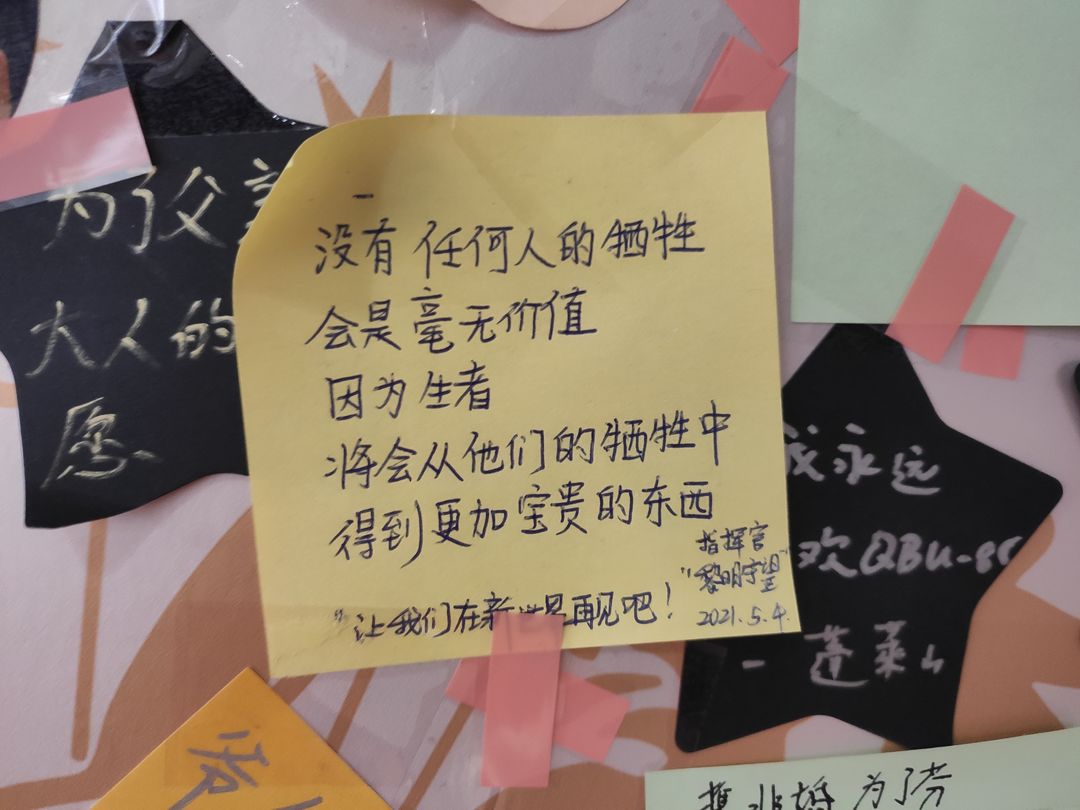 为了父亲
大人的
愿
没有任何人的牺牲
会是毫无价值
因为生者
将会从他们的牺牲中
得到更加宝贵的东西
指挥官
"黎明守望"
2021.5.4.
"让我们在新世界再见吧！
我永远
欢QBU-88
-蓬莱山